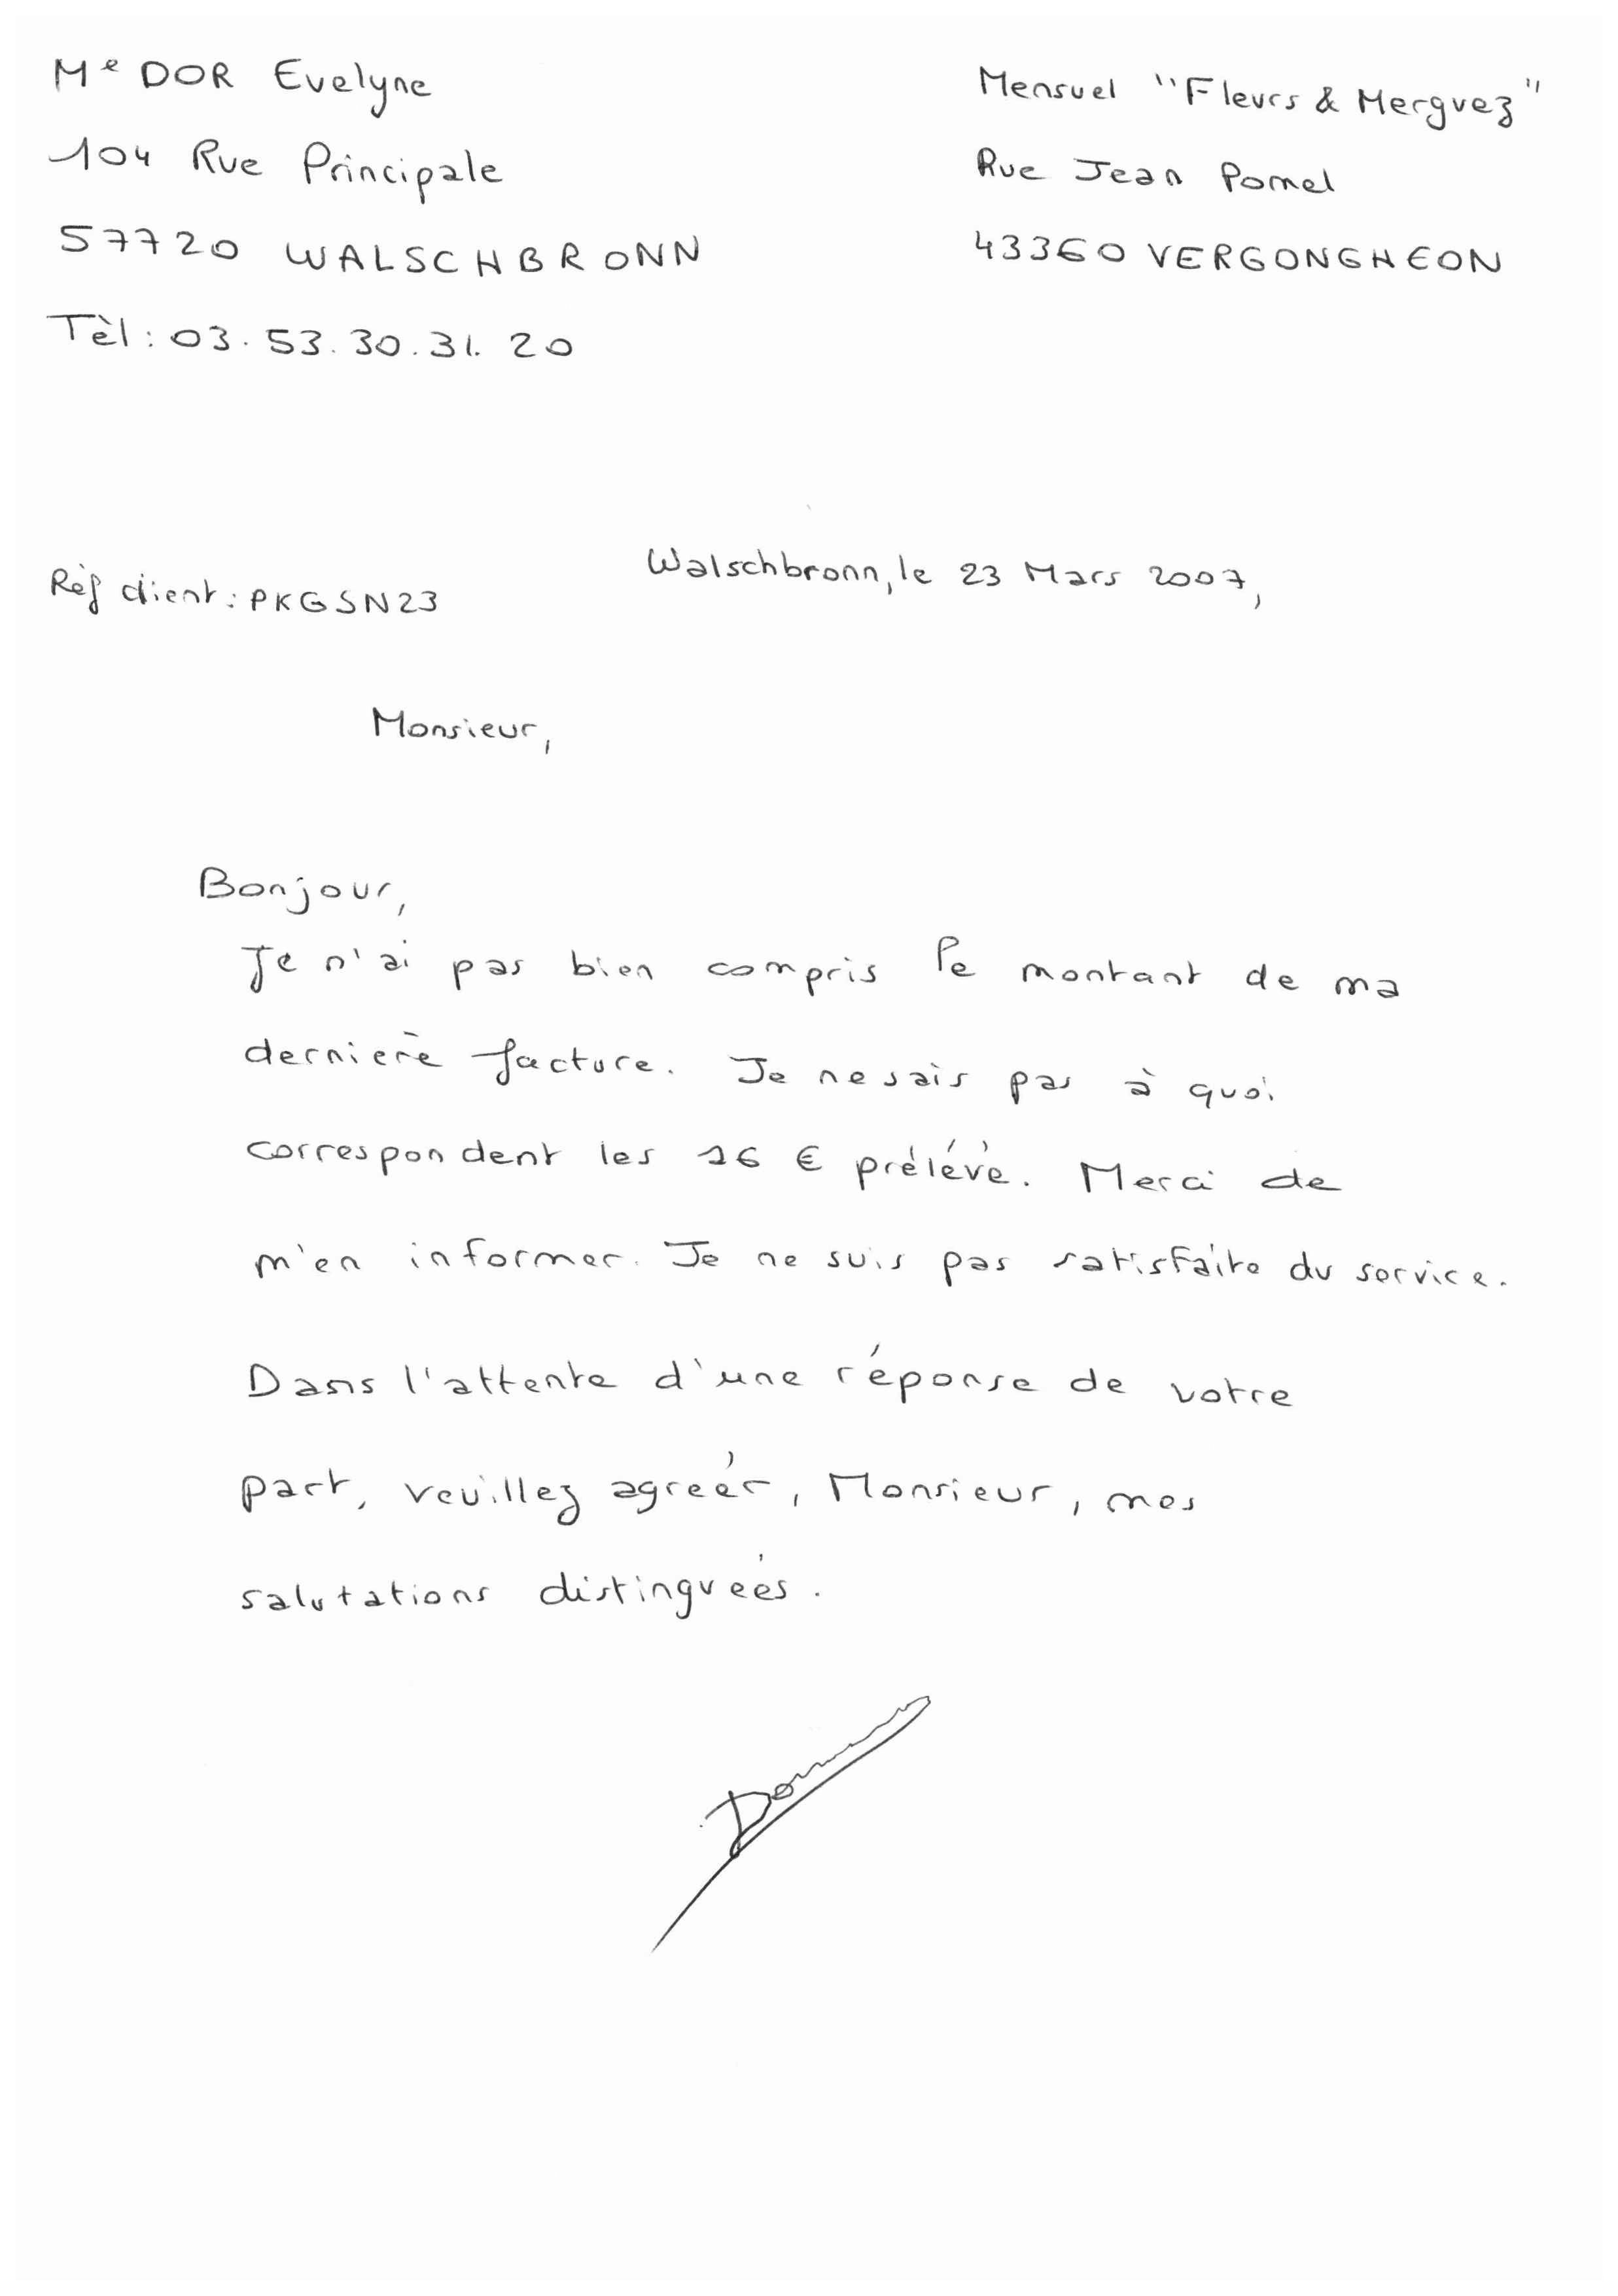 Me DOR Evelyne
104 Rue Principale
57720 WALSCHBRONN
Tèl : 03.53.30.31.20
Mensuel "Fleurs & Merguez"
Rue Jean Pomel
43360 VERGONGHEON
Rèf client : PKGSN23
Walschbronn, le 23 Mars 2007,
Monsieur,
Bonjour,
Je n'ai pas bien compris le montant de ma
dernière facture. Je ne sais pas à quoi
correspondent les 16 € prélévé. Merci de
m'en informer. Je ne suis pas satisfaite du service.
Dans l'attente d'une réponse de votre
part, veuillez agréer, Monsieur, mes
salutations distinguées.